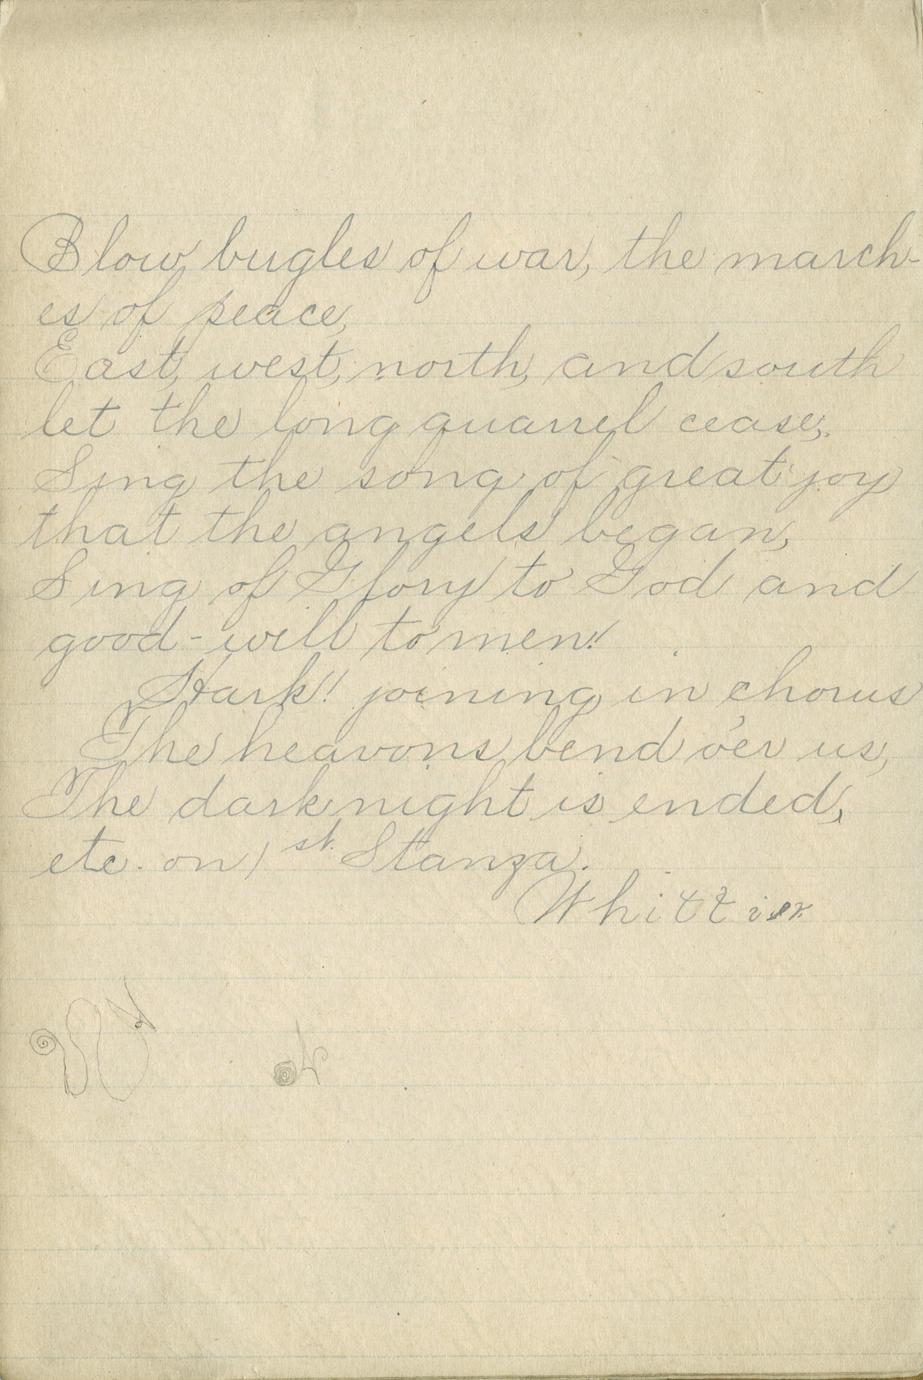 Blow bugles of war, the march-
es of peace,
East, west, north, and south
let the long quarrel cease;
Sing the song of great joy
that the angels began,
Sing of Glory to God and
good-will to men!!
Hark!! joining in chorus
The heavons bend o'er us,
The dark night is ended,
etc. on 1st. Stanza.
Whittier